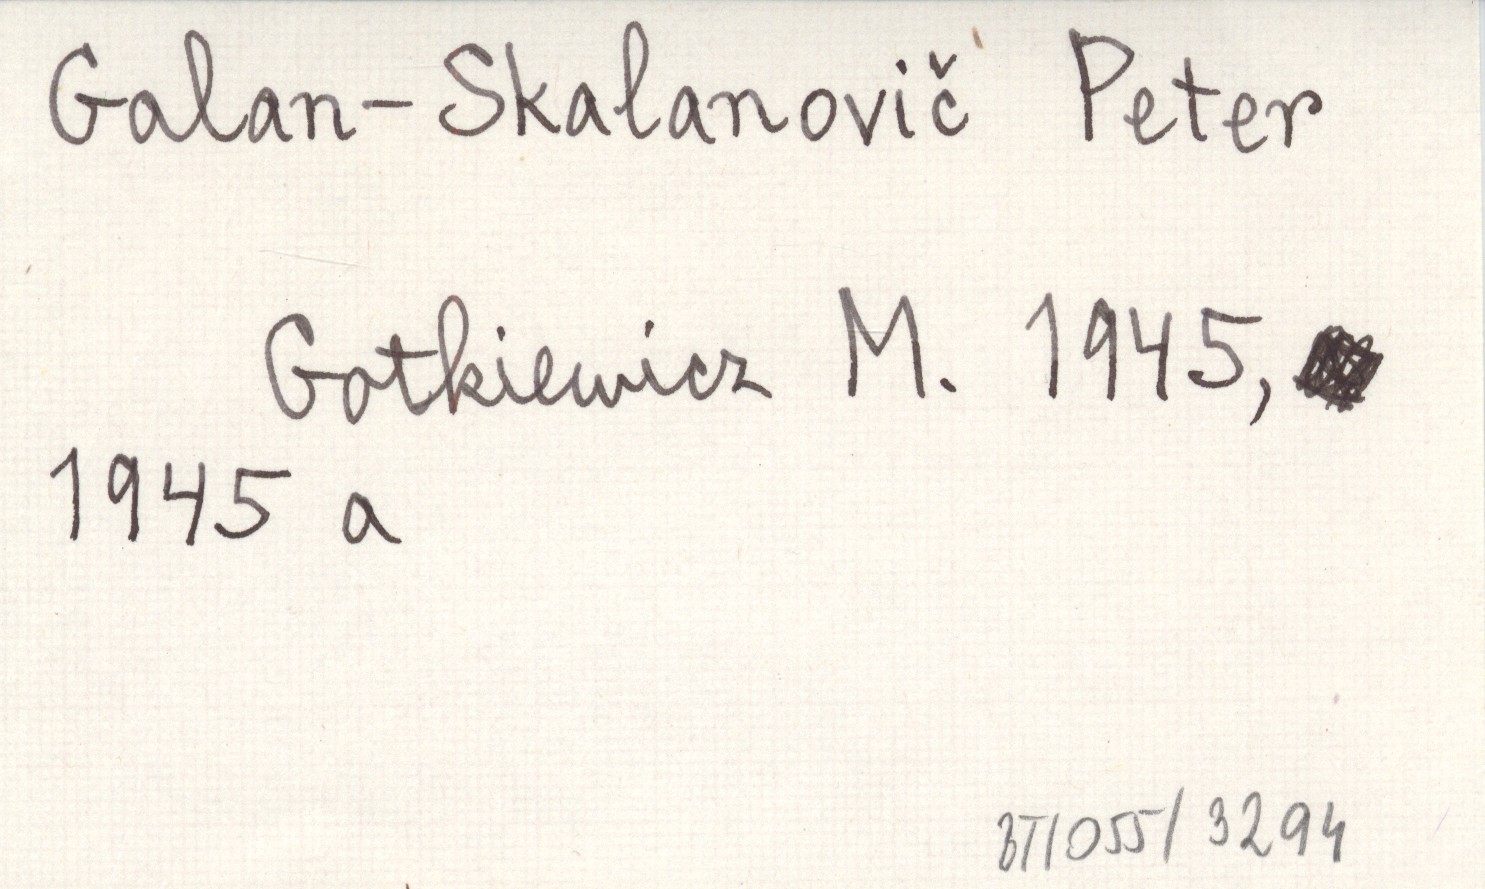 Galan-Skalanovič Peter
Gotkiewicz M. 1945,
1945 a
BT/055/3294